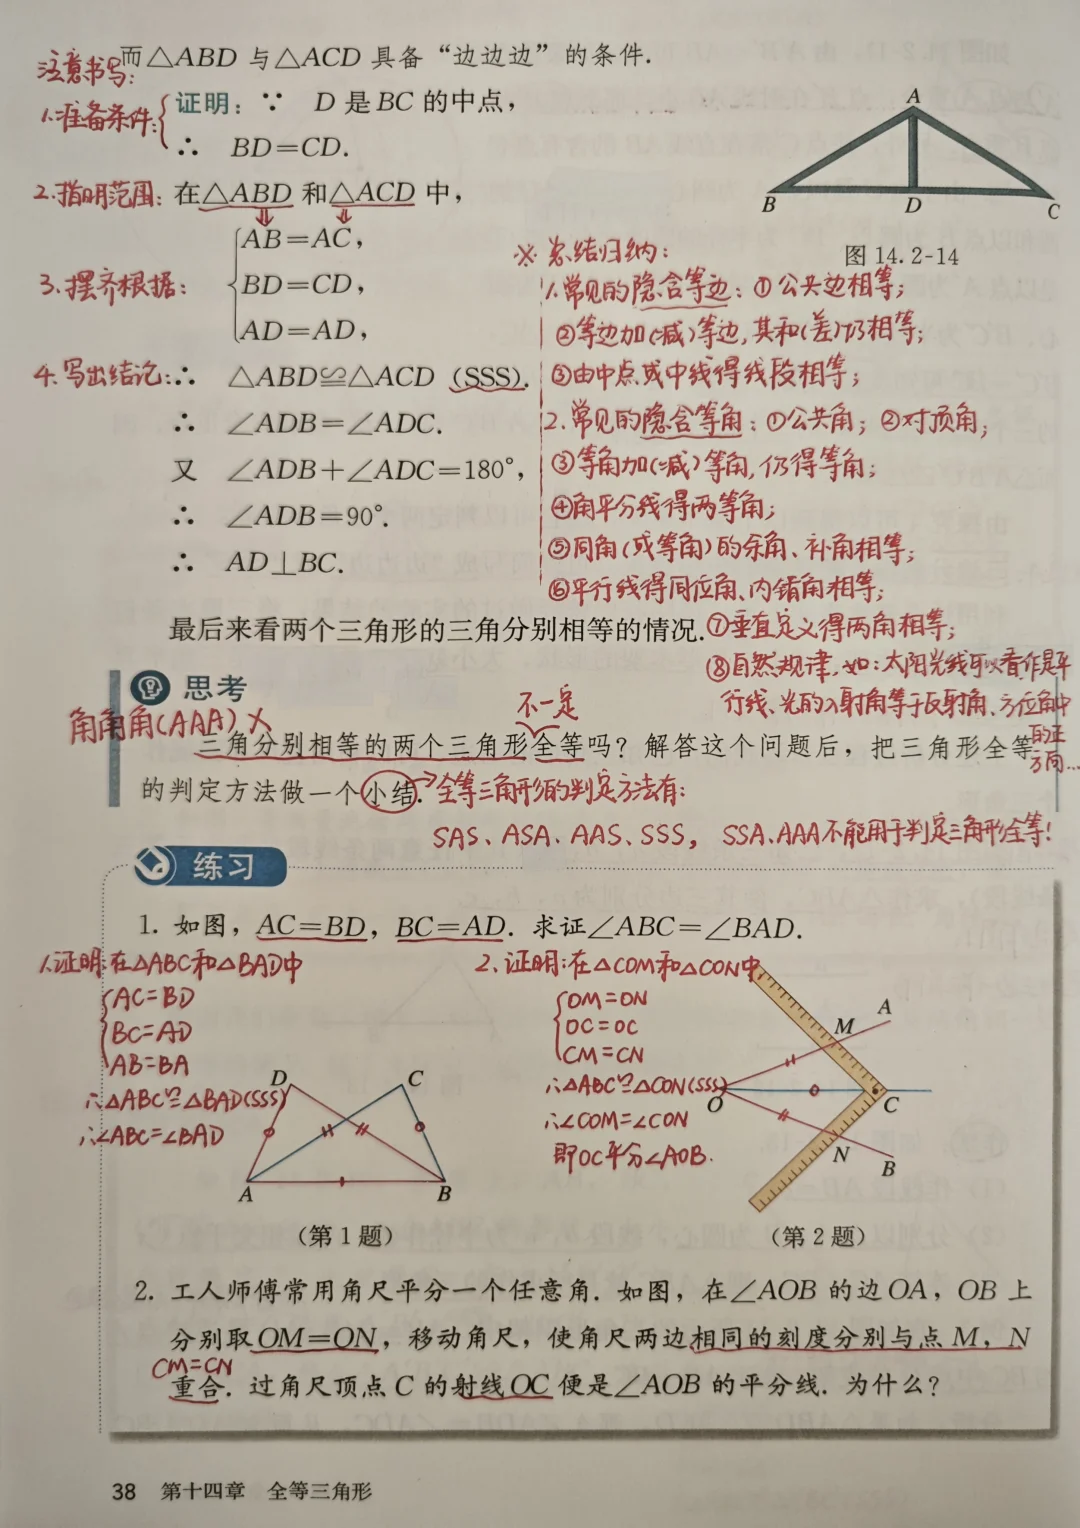 而△ABD 与△ACD 具备“边边边”的条件.
注意书写:
1.准备条件:
证明: ∵ D 是 BC 的中点,
∴ BD=CD.
2.指明范围: 在△ABD 和△ACD 中,
3.摆齐根据:
AB=AC,
BD=CD,
AD=AD,
4.写出结论: ∴ △ABD≌△ACD (SSS).
∴ ∠ADB=∠ADC.
又 ∠ADB+∠ADC=180°,
∴ ∠ADB=90°.
∴ AD⊥BC.
A
B D C
图 14.2-14
※ 总结归纳:
1.常见的隐含等边: ①公共边相等;
②等边加(减)等边,其和(差)仍相等;
③由中点或中线得线段相等;
2.常见的隐含等角: ①公共角; ②对顶角;
③等角加(减)等角,仍得等角;
④角平分线得两等角;
⑤同角(或等角)的余角、补角相等;
⑥平行线得同位角、内错角相等;
⑦垂直定义得两角相等;
⑧自然规律,如:太阳光线可以看作是平
行线、光的入射角等于反射角、方位角中
的正
方向...
最后来看两个三角形的三角分别相等的情况.
思考
角角角(AAA) ×
不一定
三角分别相等的两个三角形全等吗? 解答这个问题后, 把三角形全等
的判定方法做一个小结.
→全等三角形的判定方法有:
SAS、ASA、AAS、SSS, SSA、AAA不能用于判定三角形全等!
练习
1. 如图, AC=BD, BC=AD. 求证∠ABC=∠BAD.
1.证明:在△ABC和△BAD中
AC=BD
BC=AD
AB=BA
∴△ABC≌△BAD(SSS)
∴∠ABC=∠BAD
D C
A B
(第 1 题)
2、证明:在△COM和△CON中
OM=ON
OC=OC
CM=CN
∴△ABC≌△CON(SSS)
∴∠COM=∠CON
即OC平分∠AOB.
A
M
O C
N
B
(第 2 题)
2. 工人师傅常用角尺平分一个任意角. 如图, 在∠AOB 的边 OA, OB 上
分别取 OM=ON, 移动角尺, 使角尺两边相同的刻度分别与点 M, N
CM=CN
重合. 过角尺顶点 C 的射线 OC 便是∠AOB 的平分线. 为什么?
38 第十四章 全等三角形